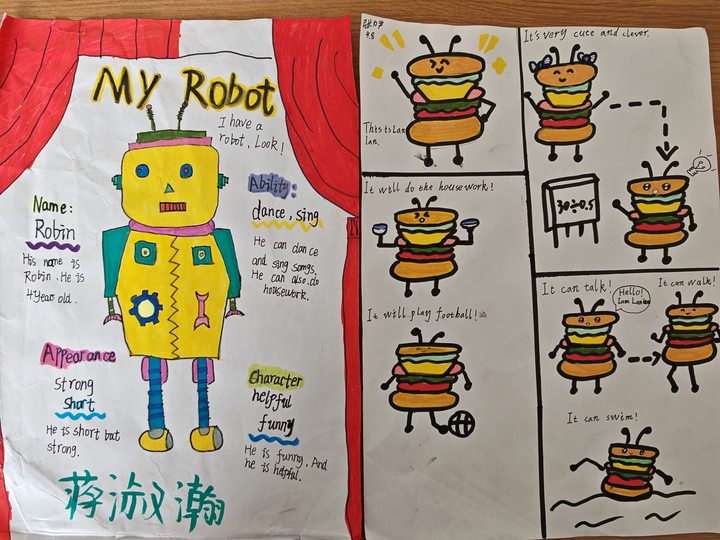 MY Robot
I have a
robot. Look!
Name:
Robin
His name is
Robin. He is
4 years old.
Ability:
dance, sing
He can dance
and sing songs.
He can also do
housework.
Appearance
strong
short
He is short but
strong.
Character
helpful
funny
He is funny. And
he is helpful.
蒋淑瀚
4.8
This is Lan
lan.
It's very cute and clever.
30÷0.5
It will do the housework!
It will play football!
It can talk!
Hello!
I am Lanlan
It can walk!
It can swim!